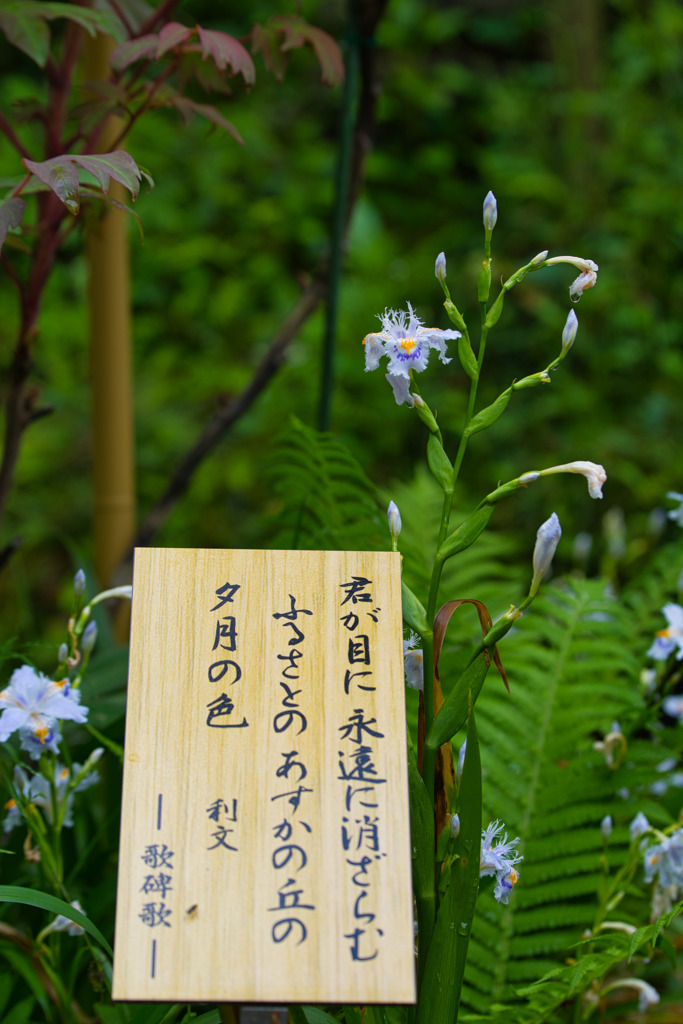 君が目に永遠に消ざらむ
ふるさとのあすかの丘の
夕月の色
利文
―歌碑歌―